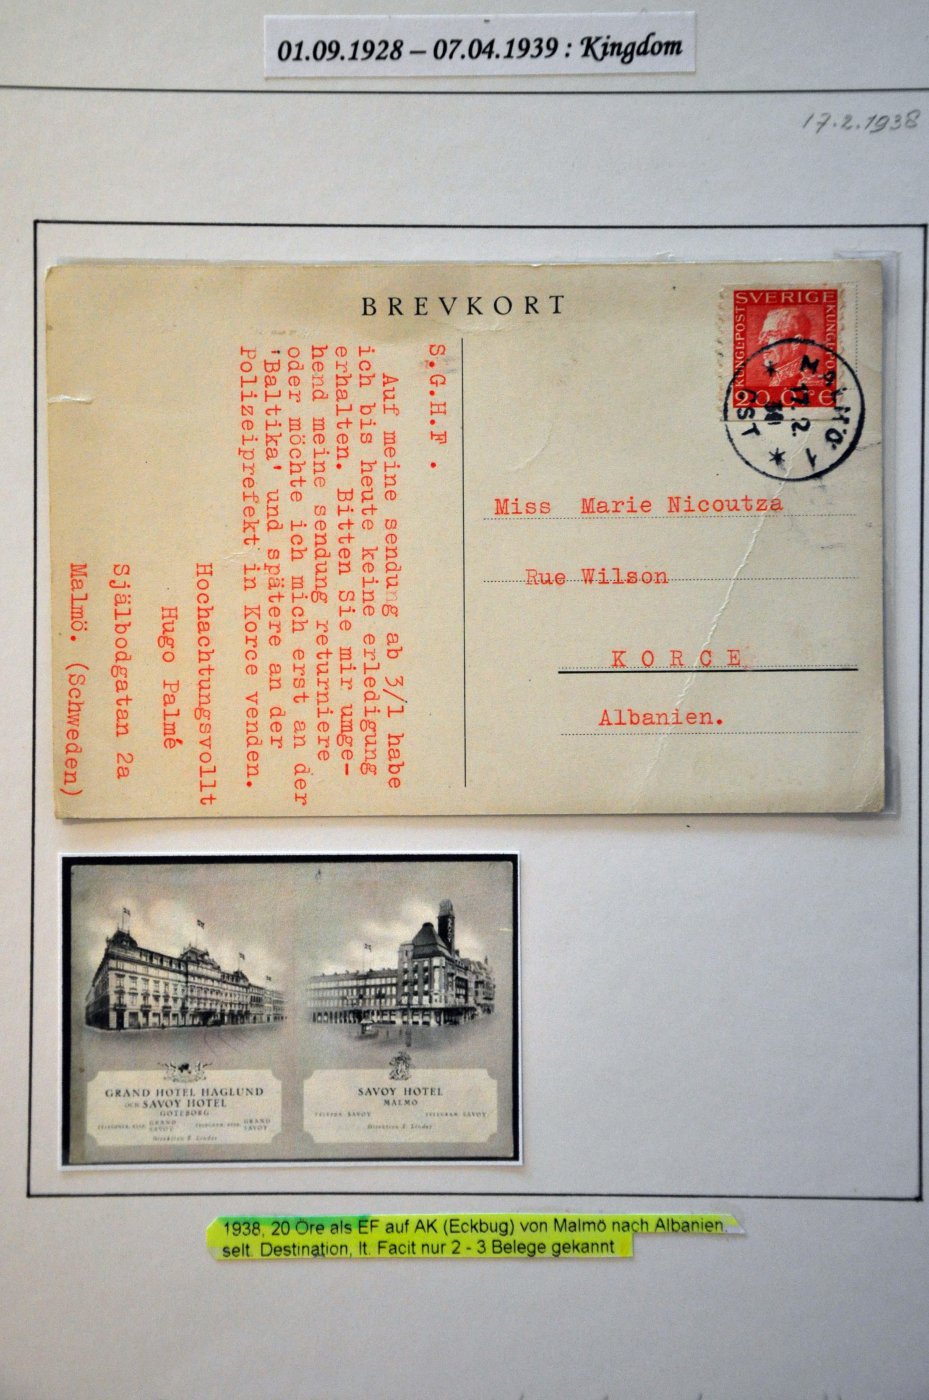 01.09.1928 – 07.04.1939 : Kingdom
17.2.1938
BREVKORT
SVERIGE
KUNGL·POST
KUNGL·POST
20 ÖRE
MALMÖ 1
17.2.
ÖST
S.G.H.F .
Auf meine sendung ab 3/1 habe
ich bis heute keine erledigung
erhalten. Bitten Sie mir umge-
hend meine sendung returniere
oder möchte ich mich erst an der
'Baltika' und spätere an der
Polizeiprefekt in Korce venden.
Hochachtungsvollt
Hugo Palmé
Själbodgatan 2a
Malmö. (Schweden)
Miss Marie Nicoutza
Rue Wilson
KORCE
Albanien.
GRAND HOTEL HAGLUND
OCH SAVOY HOTEL
GÖTEBORG
GRAND
SAVOY
GRAND
SAVOY
Direktion E. Linder
SAVOY HOTEL
MALMÖ
TELEFON: SAVOY
TELEGRAM: SAVOY
Direktion E. Linder
1938, 20 Öre als EF auf AK (Eckbug) von Malmö nach Albanien
selt. Destination, lt. Facit nur 2 - 3 Belege gekannt